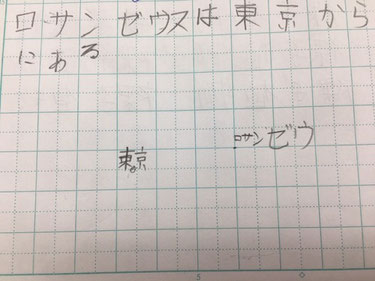 ロサンゼウスは東京から
にある
東京
ロサンゼウ
5
0